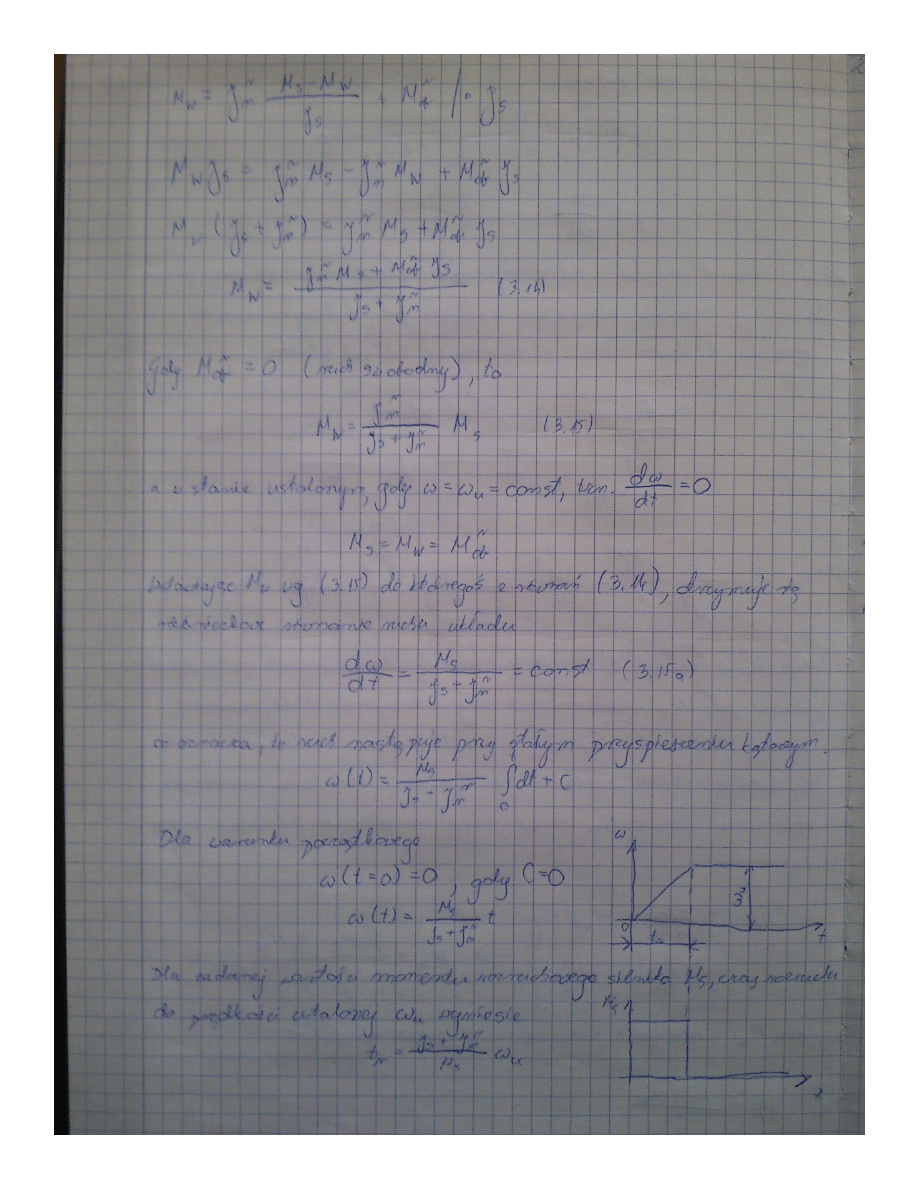 2
M_w = J_m^~ (M_s − M_w)/J_s + M_ob^~ /· J_s
M_w J_s = J_m^~ M_s − J_m^~ M_w + M_ob^~ J_s
M_w (J_s + J_m^~) = J_m^~ M_s + M_ob^~ J_s
M_w = (J_m^~ M_s + M_ob^~ J_s)/(J_s + J_m^~) (3.14)
Gdy M_ob^~ = 0 (ruch swobodny), to
M_w = J_m^~/(J_s + J_m^~) M_s (3.15)
a w stanie ustalonym, gdy ω = ω_u = const, tzn. dω/dt = 0
M_s = M_w = M_ob^~
M_w wg (3.15) do któregoś z równań (3.14), otrzymuje się
równanie ruchu układu
dω/dt = M_s/(J_s + J_m^~) = const (3.15a)
co oznacza, że ruch następuje przy stałym przyspieszeniu kątowym.
ω(t) = M_s/(J_s + J_m^~) ∫_0 dt + C
Dla warunku początkowego
ω(t=0) = 0, gdy C = 0
ω(t) = M_s/(J_s + J_m^~) t
ω
0
t
Dla zadanej wartości momentu rozruchowego silnika M_s, czas rozruchu
do prędkości ustalonej ω_u wyniesie
t_r = (J_s + J_m^~)/M_s ω_u
M_s
t